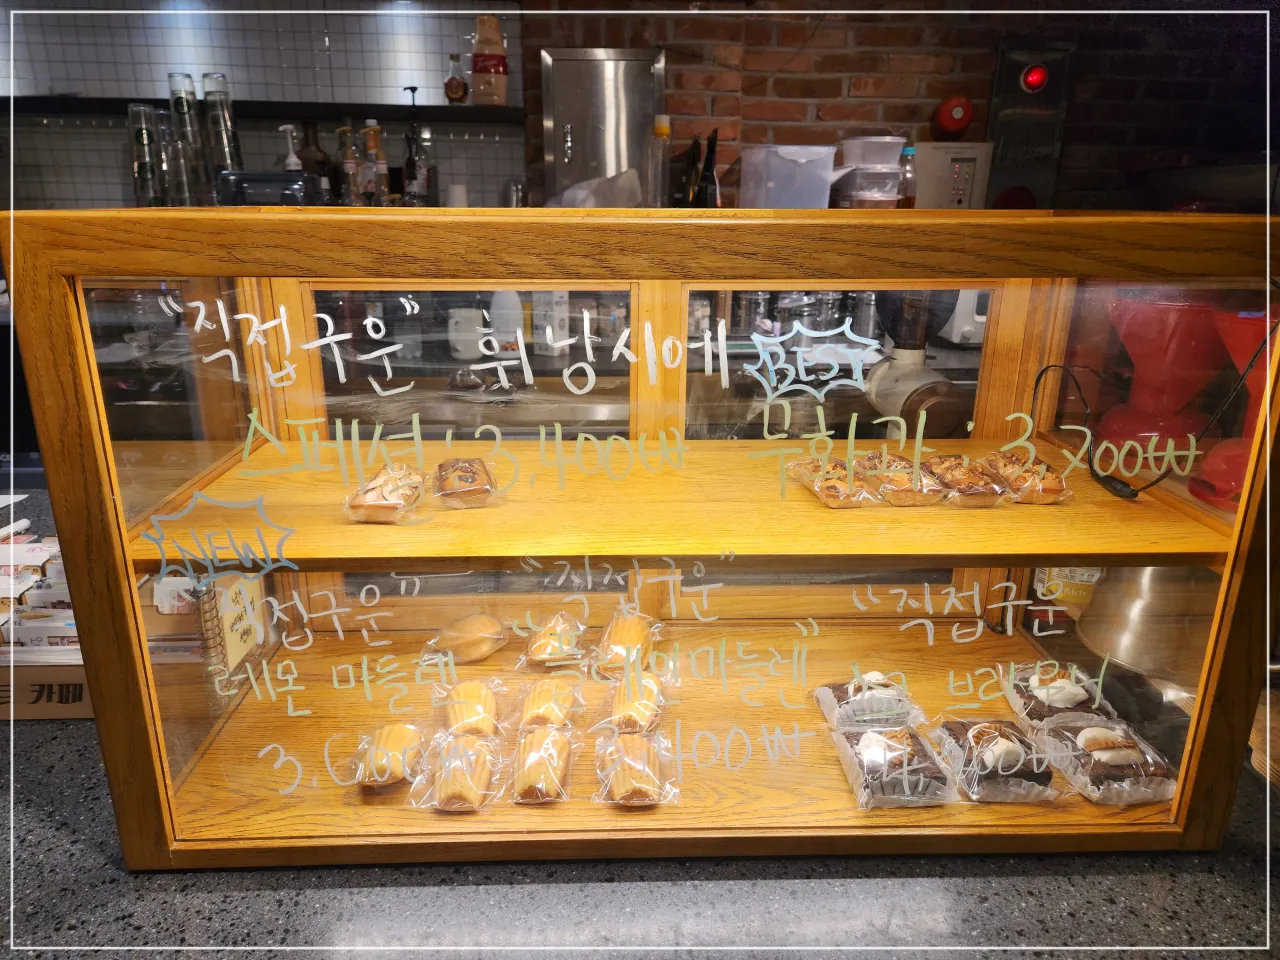 "직접구운" 휘낭시에 BEST
스페셜 : 3,400₩ 무화과 : 3,700₩
NEW
"직접구운" "직접구운" "직접구운"
레몬 마들렌 플레인마들렌 쇼콜 브라우니
3,600₩ 3,400₩ 4,900₩
카페